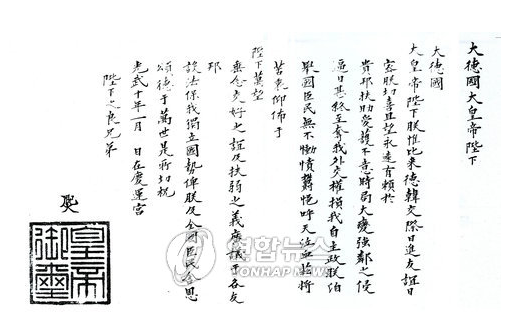 大德國大皇帝陛下
大德國
大皇帝陛下朕惟比来德韓交際日進友誼日
密朕切喜且望永遠有賴於
貴邦扶助愛護不意時局大變强鄰之侵
逼日甚終至奪我外交權損我自主政朕洎
擧國臣民無不慟憤鬱悒呼天泣血玆將
苦衷仰佈于
陛下萬望
垂念交好之誼及扶弱之義廣議于各友
邦
設法保我獨立國勢俾朕及全國臣民含恩
頌德于萬世是所切祝
光武十年一月 日在慶運宮
陛下之良兄弟
皇帝
御璽
연합뉴스
YONHAP NEWS